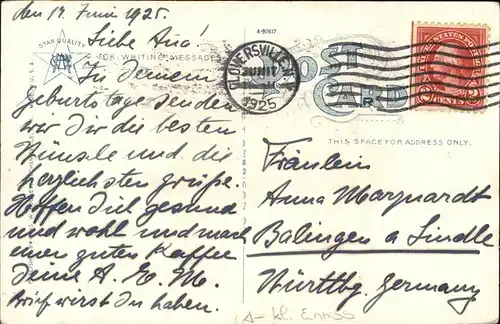 den 17. Juni 1925.
Liebe Ana!
Zu Deinem
Geburtstage senden
wir Dir die besten
Wünsche und die
herzlichsten Grüße.
Hoffen Dich gesund
und wohl und mach
einen guten Kaffee
Deine A. E. M.
Brief wirst Du haben.
STAR QUALITY
FOR WRITING MESSAGES
A-80517
GLOVERSVILLE N.Y.
JUN 17
1925
POST CARD
THIS SPACE FOR ADDRESS ONLY.
2 CENTS 2
Fräulein
Anna Marquardt
Balingen a
Württbg. Germany